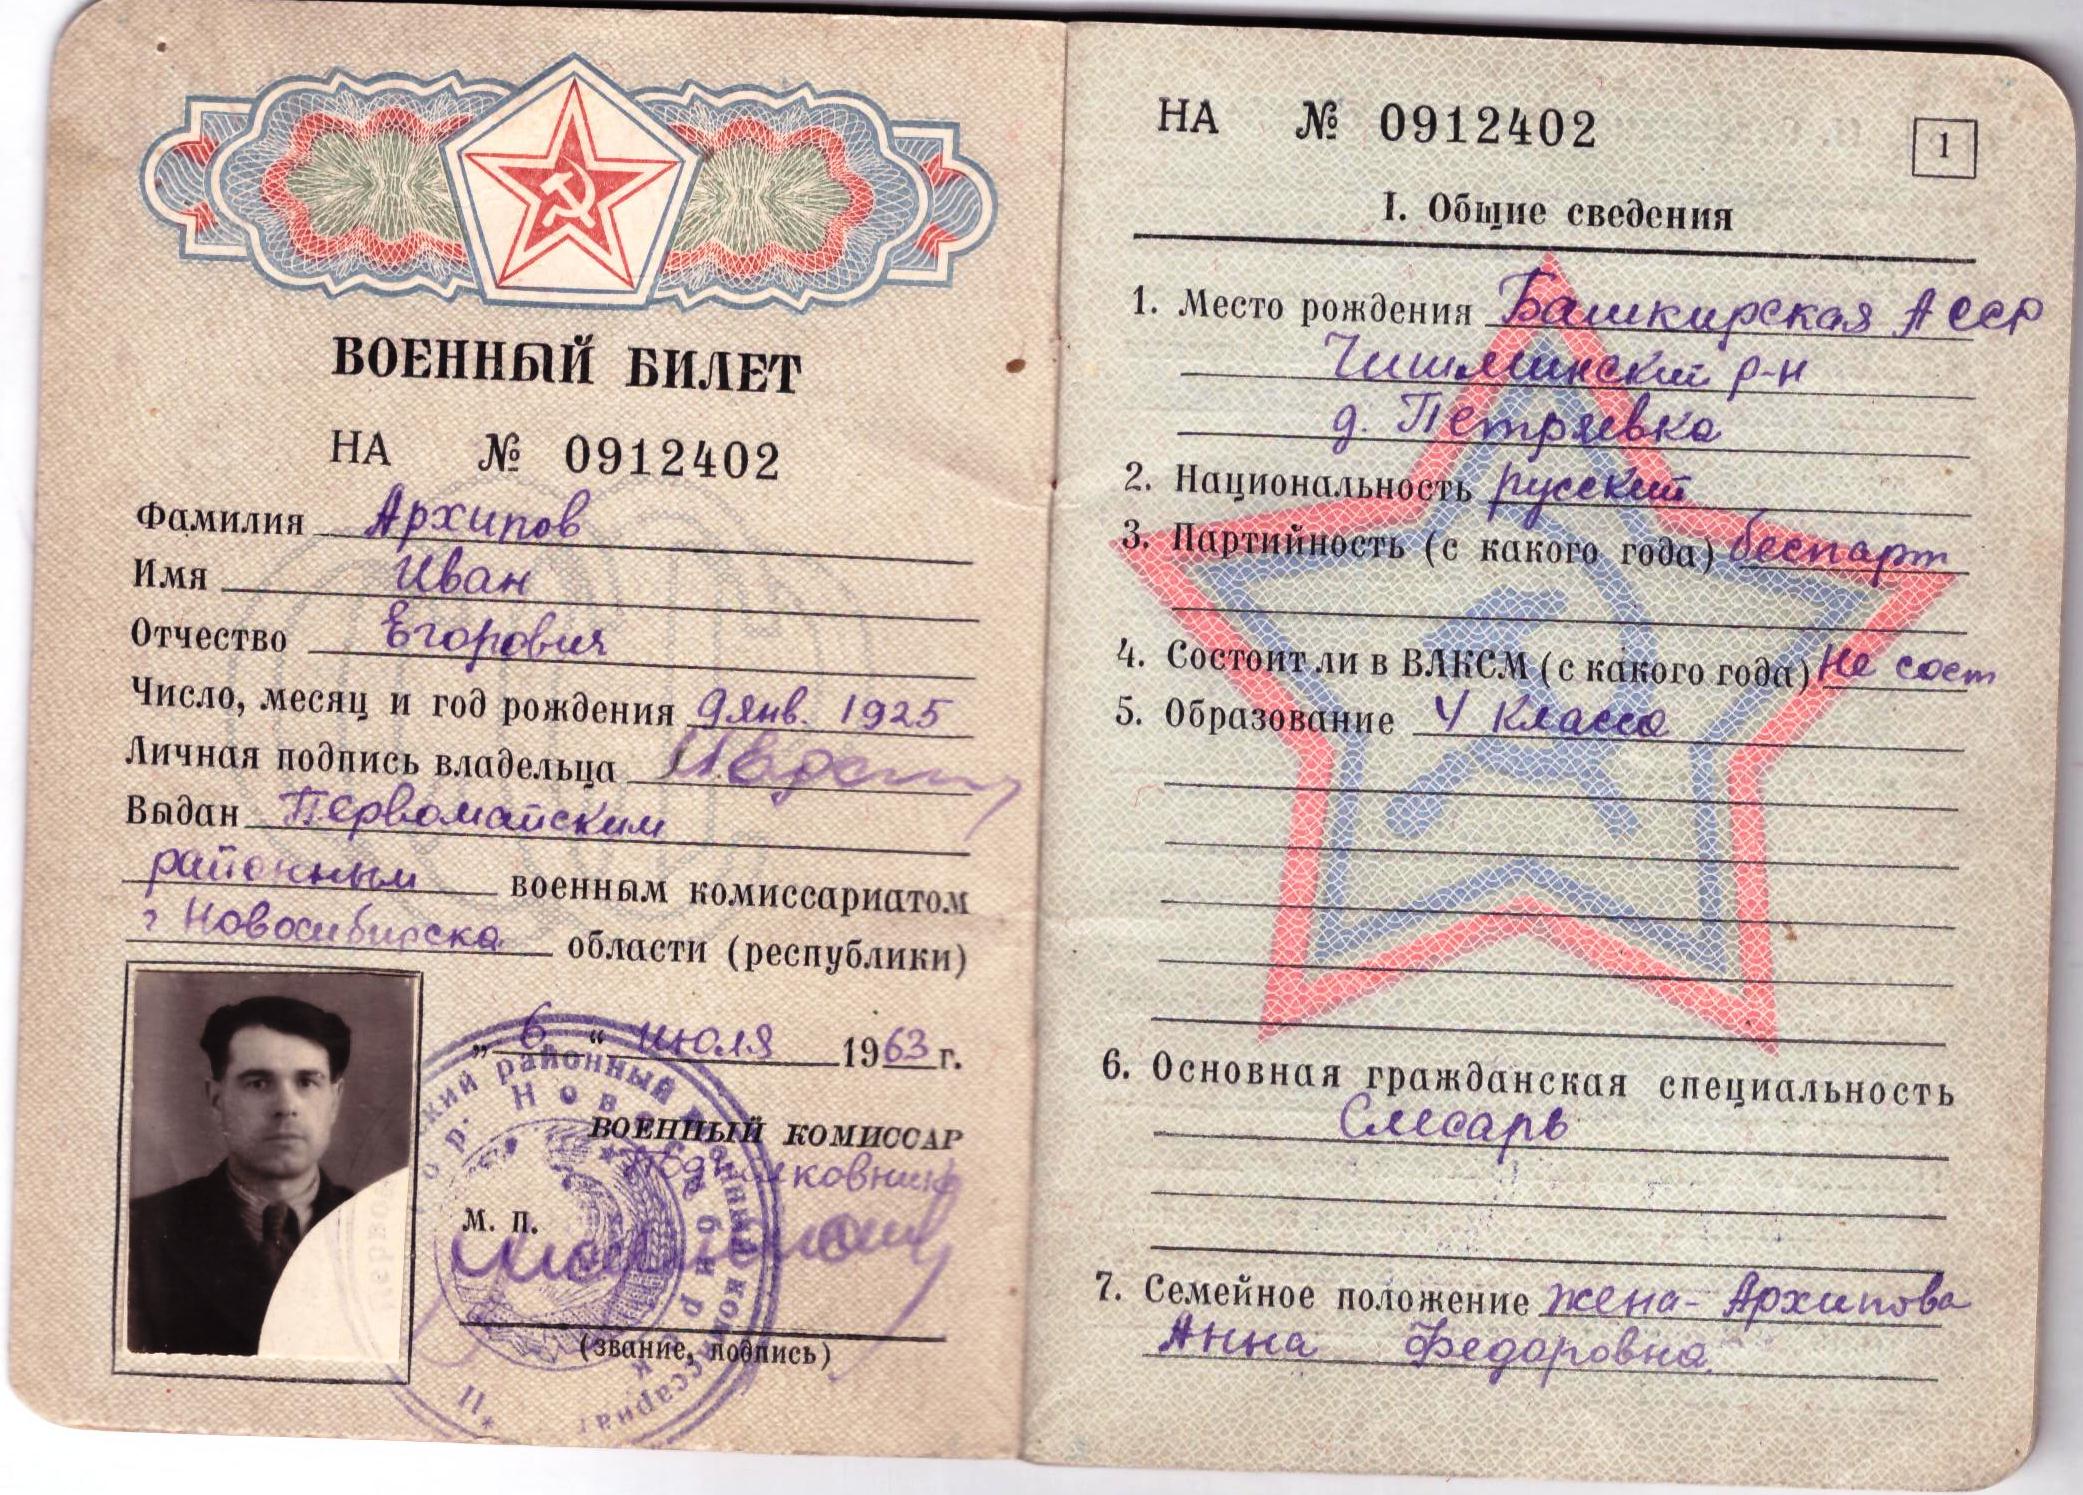 ВОЕННЫЙ БИЛЕТ
НА № 0912402
Фамилия Архипов
Имя Иван
Отчество Егорович
Число, месяц и год рождения 9 янв. 1925
Личная подпись владельца
Выдан Первомайским
районным военным комиссариатом
г Новосибирска области (республики)
„ 6 “ июля 1963 г.
ВОЕННЫЙ КОМИССАР
Подполковник
М. П.
(звание, подпись)
районный военный комиссариат
гор. Новосибирск
НА № 0912402
1
I. Общие сведения
1. Место рождения Башкирская АССР
Чишминский р-н
д. Петряевка
2. Национальность русский
3. Партийность (с какого года) беспарт
4. Состоит ли в ВЛКСМ (с какого года) не сост
5. Образование 4 класса
6. Основная гражданская специальность
Слесарь
7. Семейное положение жена - Архипова
Анна Федоровна